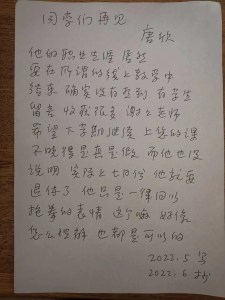 同学们再见
唐欣
他的职业生涯 居然
要在所谓的线上教学中
结束 确实没有想到 有学生
留言 收获很多 谢谢老师
希望下学期继续上您的课
不晓得是真是假 而他也没
说明 实际上七月份 他就要
退休了 他只是一律回以
抱拳的表情 这个嘛 好像
怎么理解 也都是可以的
2022.5 写
2022.6 抄